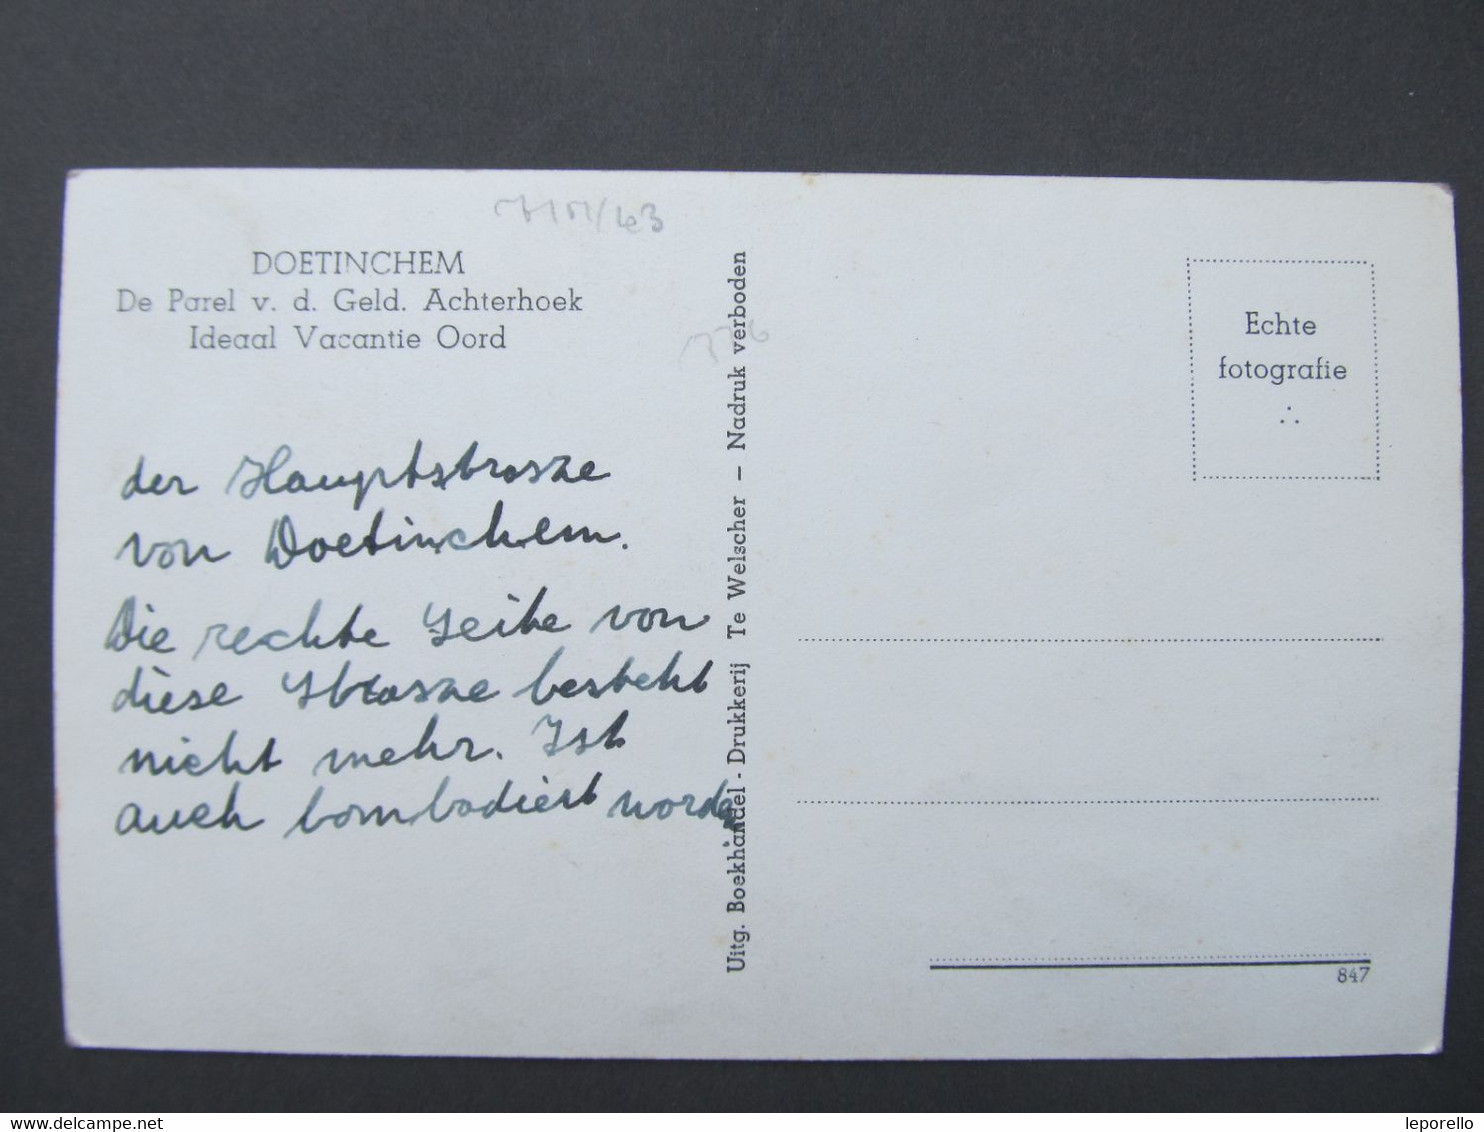 DOETINCHEM
De Parel v. d. Geld. Achterhoek
Ideaal Vacantie Oord
der Hauptstrasze
von Doetinchem.
Die rechte Seite von
diese Strasze besteht
nicht mehr. Ist
auch bombadiert worde
Uitg. Boekhandel - Drukkerij Te Welscher — Nadruk verboden
Echte
fotografie
847
leporello